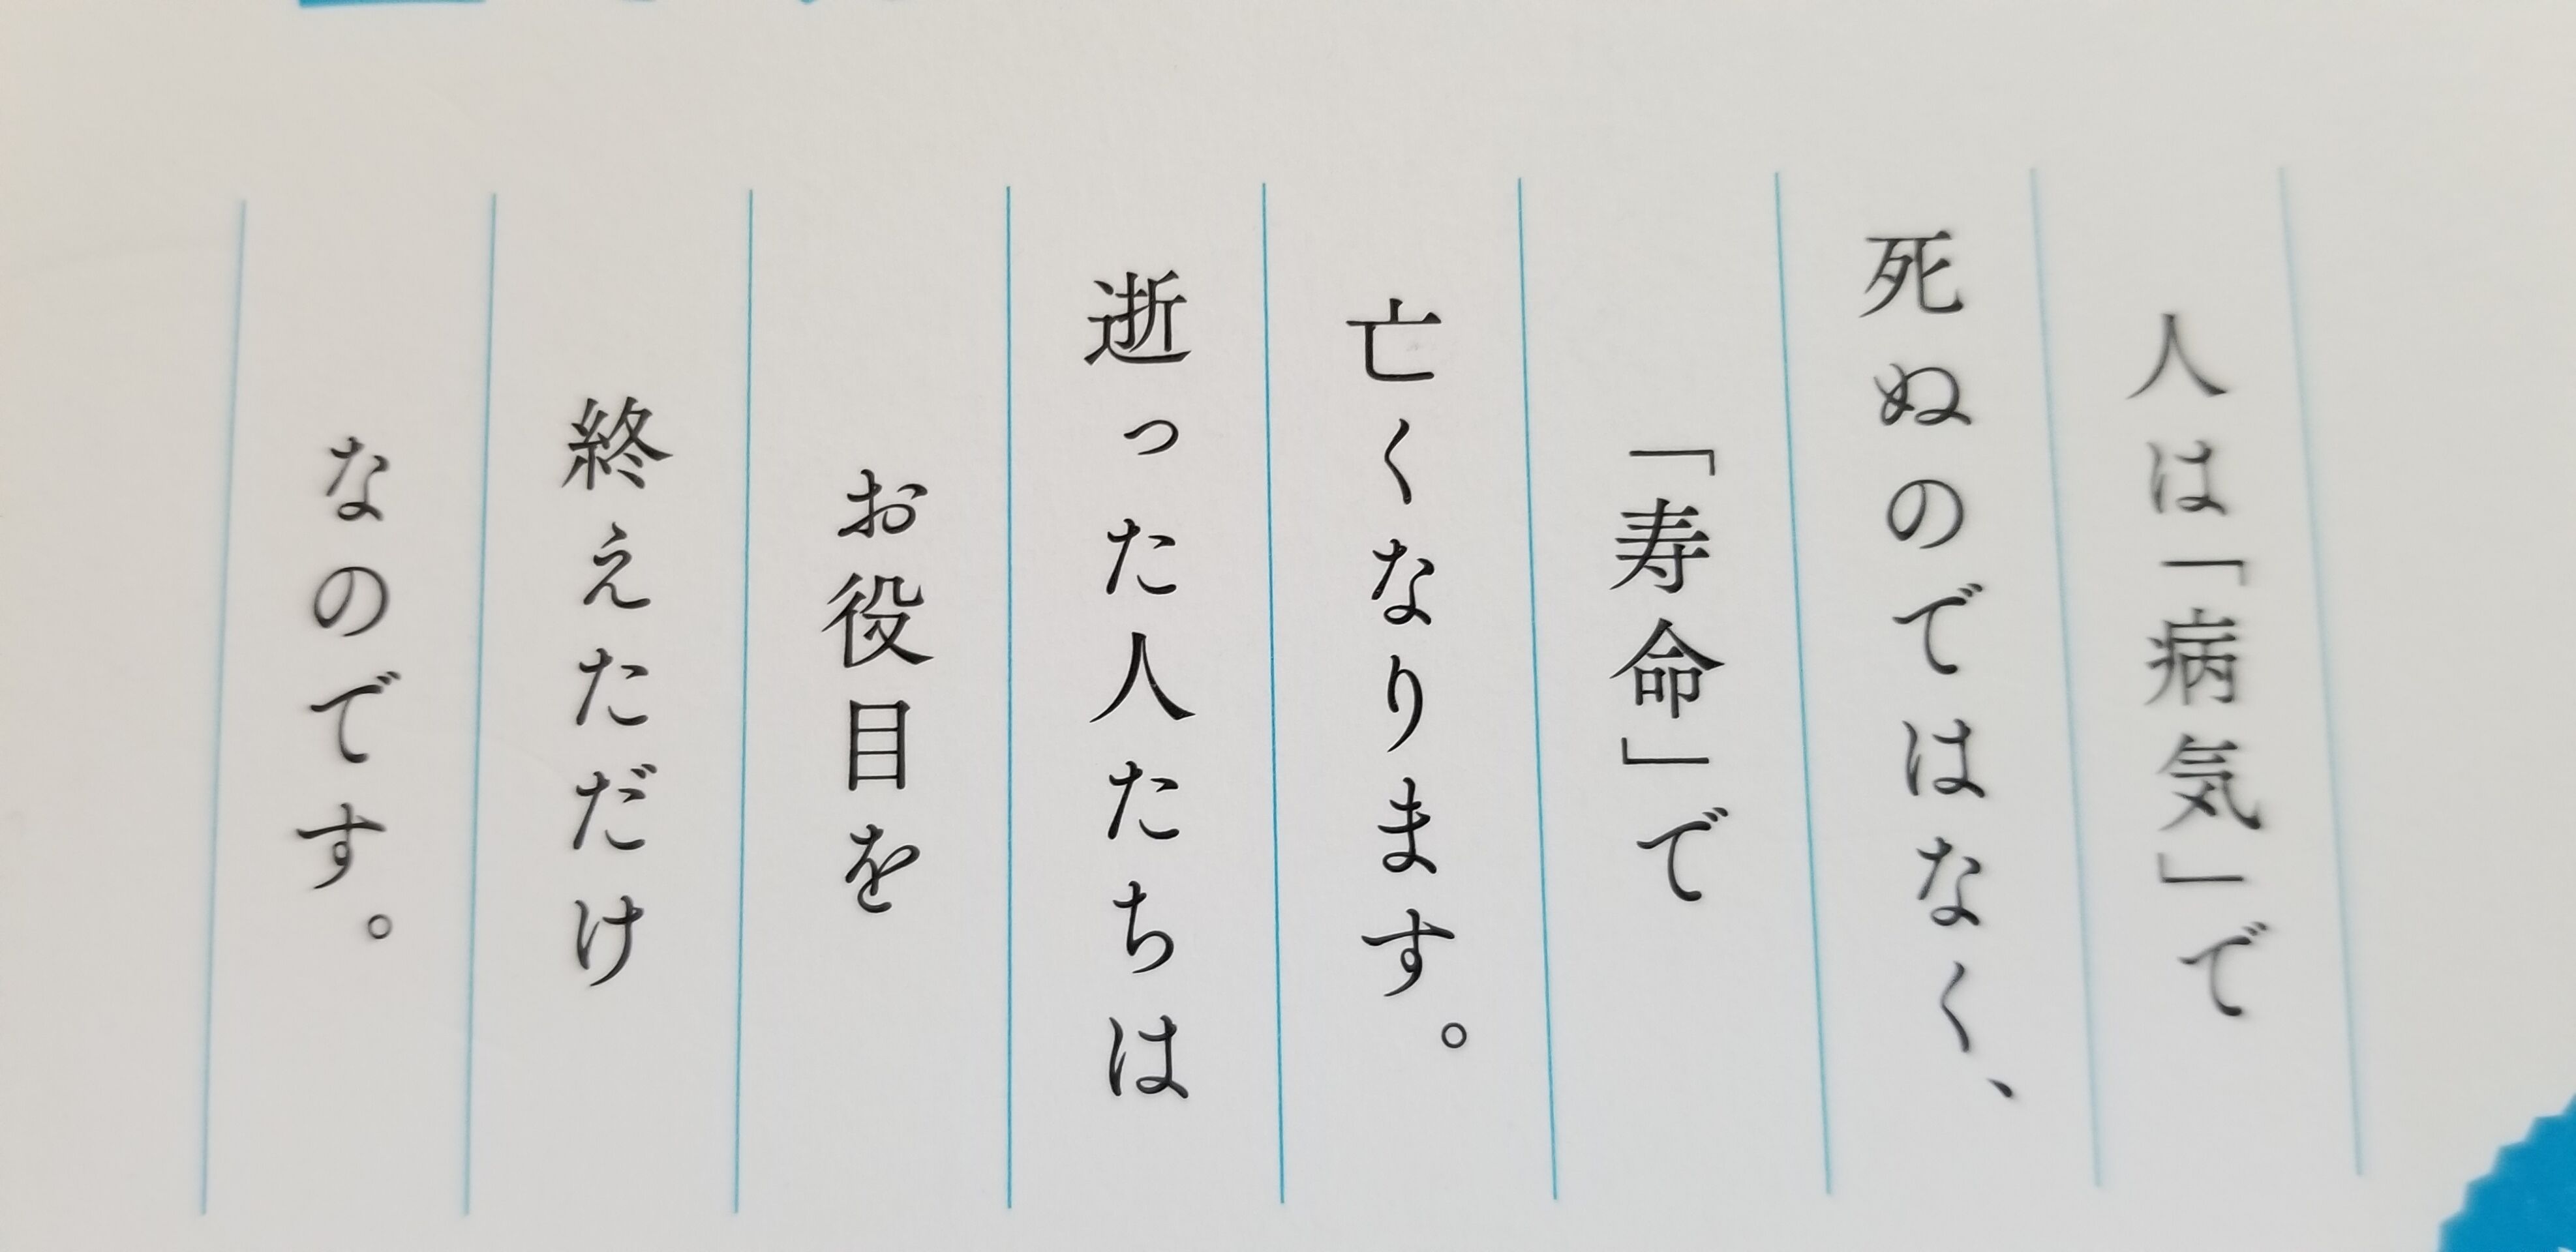 人は「病気」で
死ぬのではなく、
「寿命」で
亡くなります。
逝った人たちは
お役目を
終えただけ
なのです。